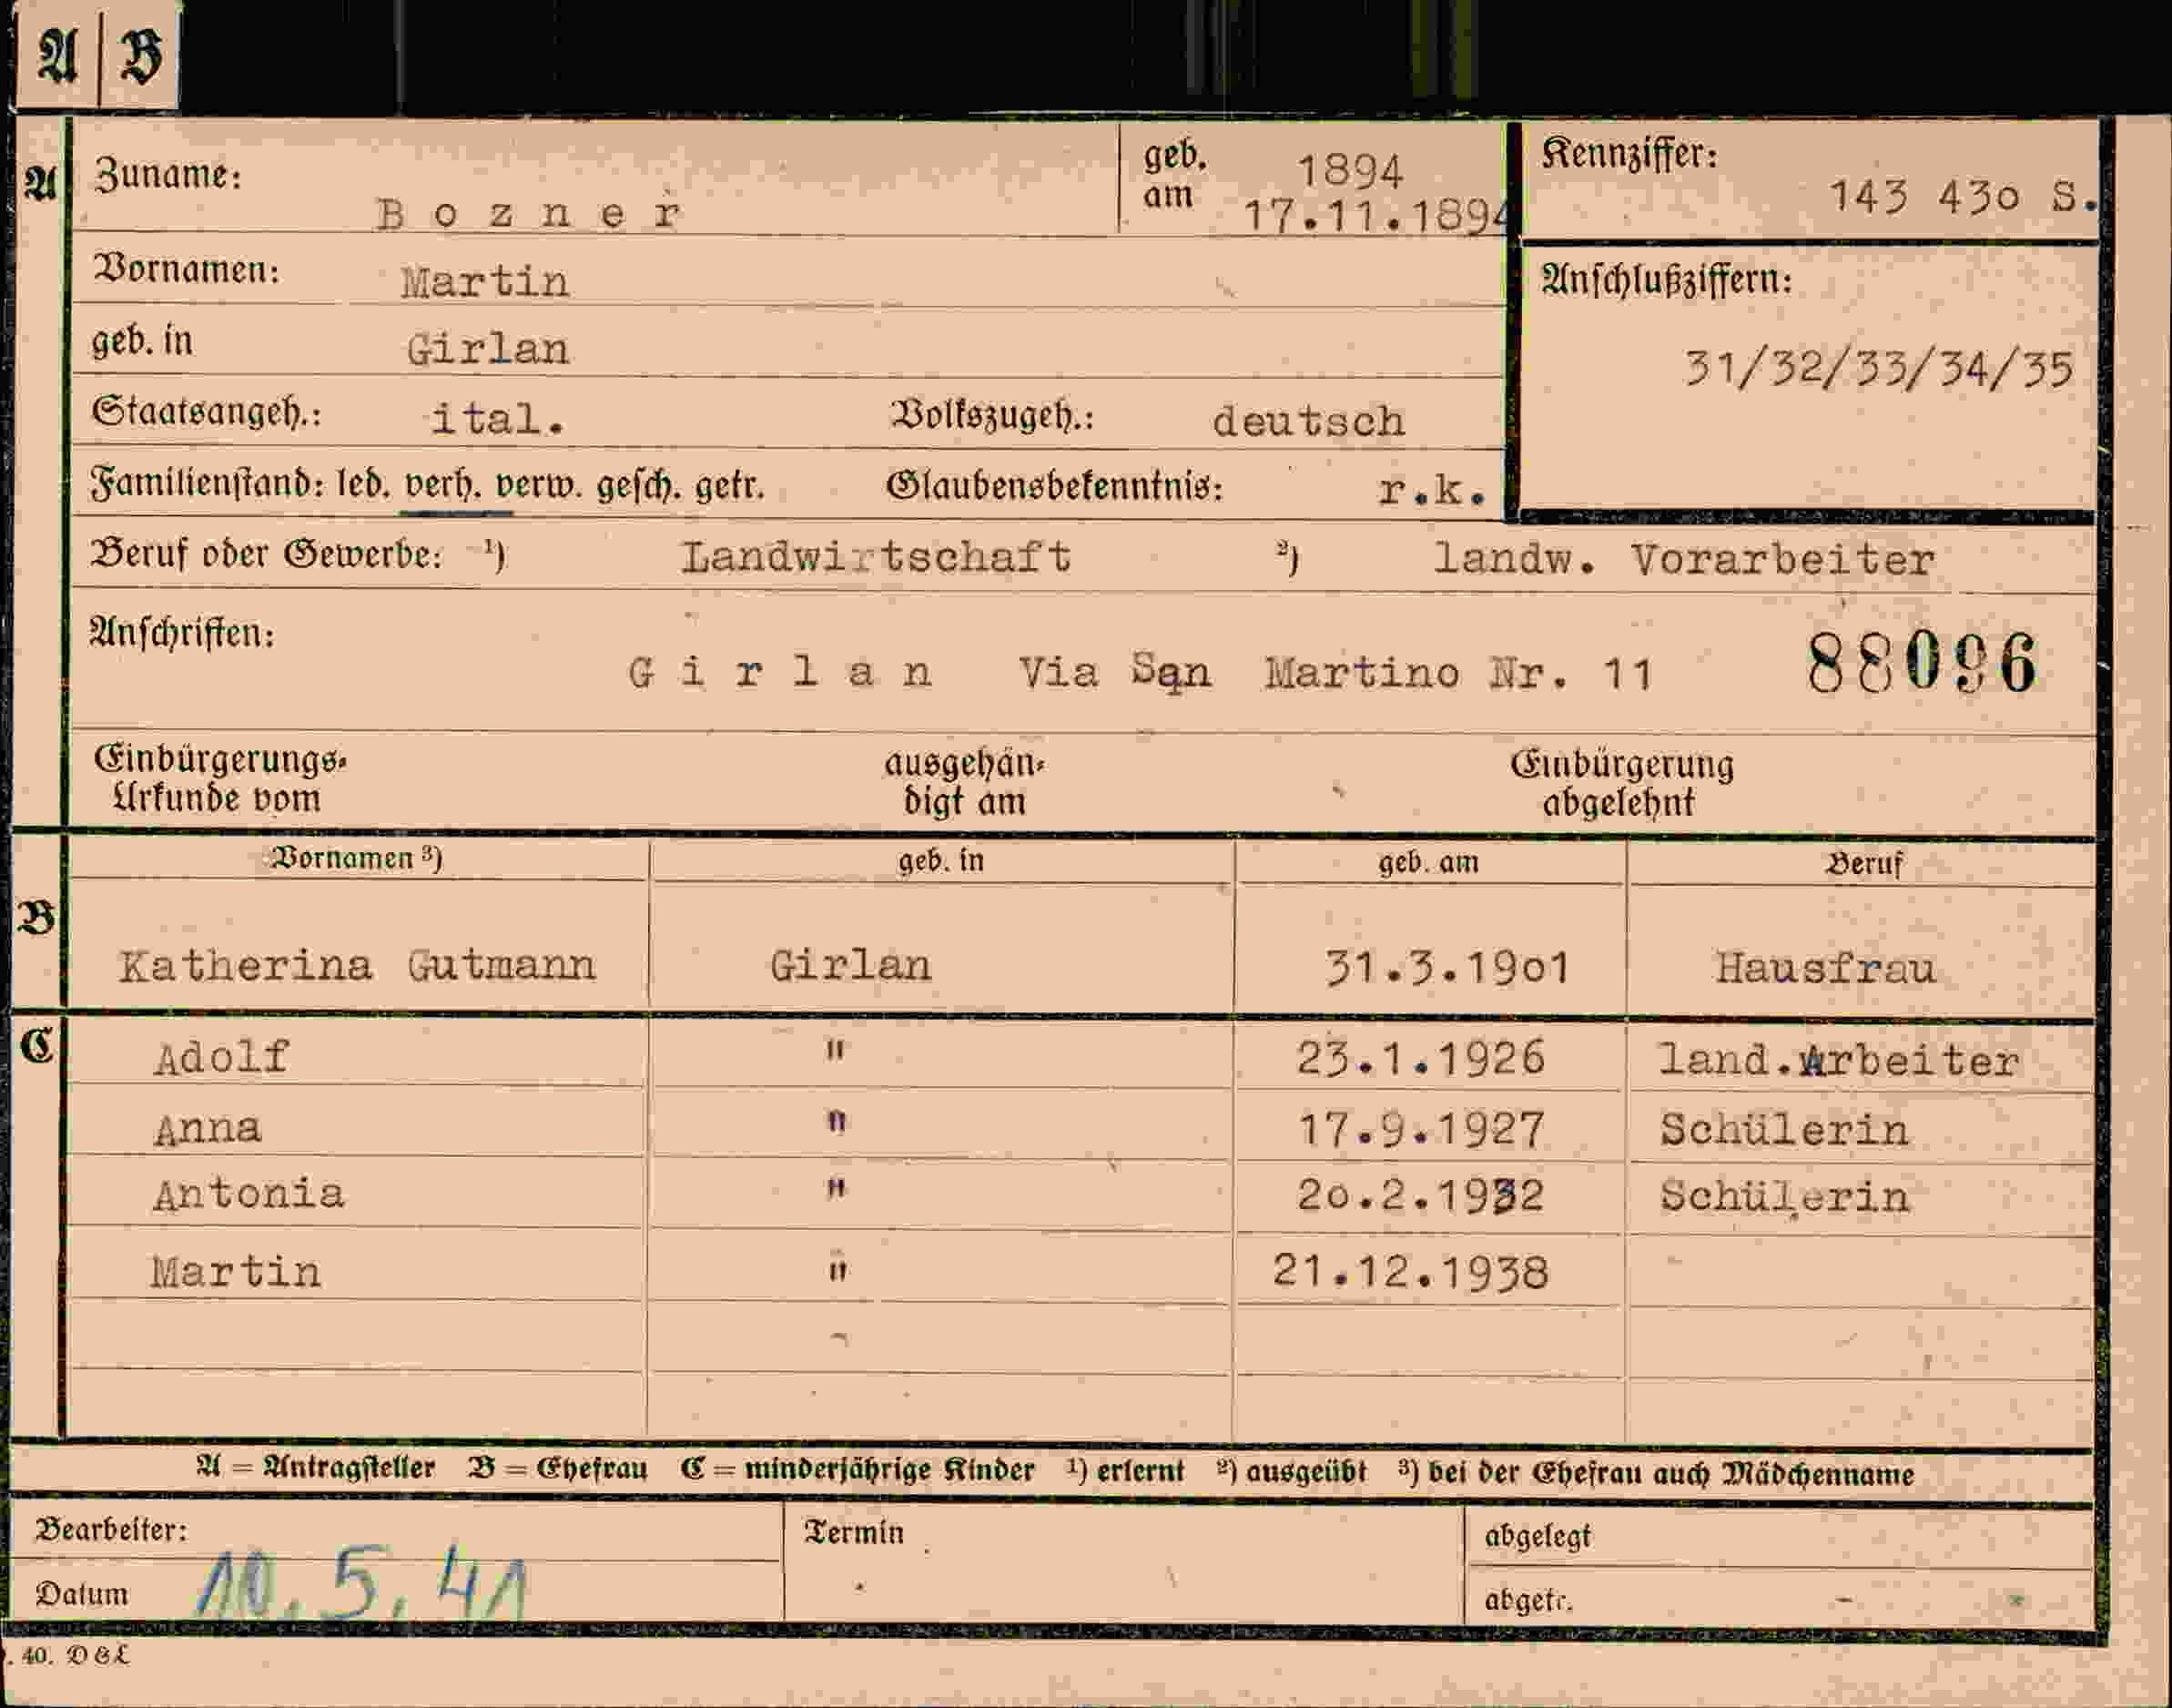 A | B
A Zuname: Bozner geb. am 1894 17.11.1894 Kennziffer: 143 430 S.
Vornamen: Martin Anschlußziffern:
geb. in Girlan 31/32/33/34/35
Staatsangeh.: ital. Volkszugeh.: deutsch
Familienstand: led. verh. verw. gesch. getr. Glaubensbekenntnis: r.k.
Beruf oder Gewerbe: ¹) Landwirtschaft ²) landw. Vorarbeiter
Anschriften: Girlan Via San Martino Nr. 11 88096
Einbürgerungs- ausgehän- Einbürgerung
Urkunde vom digt am abgelehnt
B Vornamen ³) geb. in geb. am Beruf
Katherina Gutmann Girlan 31.3.1901 Hausfrau
C Adolf " 23.1.1926 land.Arbeiter
Anna " 17.9.1927 Schülerin
Antonia " 20.2.1932 Schülerin
Martin " 21.12.1938
A = Antragsteller B = Ehefrau C = minderjährige Kinder ¹) erlernt ²) ausgeübt ³) bei der Ehefrau auch Mädchenname
Bearbeiter: Termin abgelegt
Datum 10.5.41 abgetr.
. 40. D & L